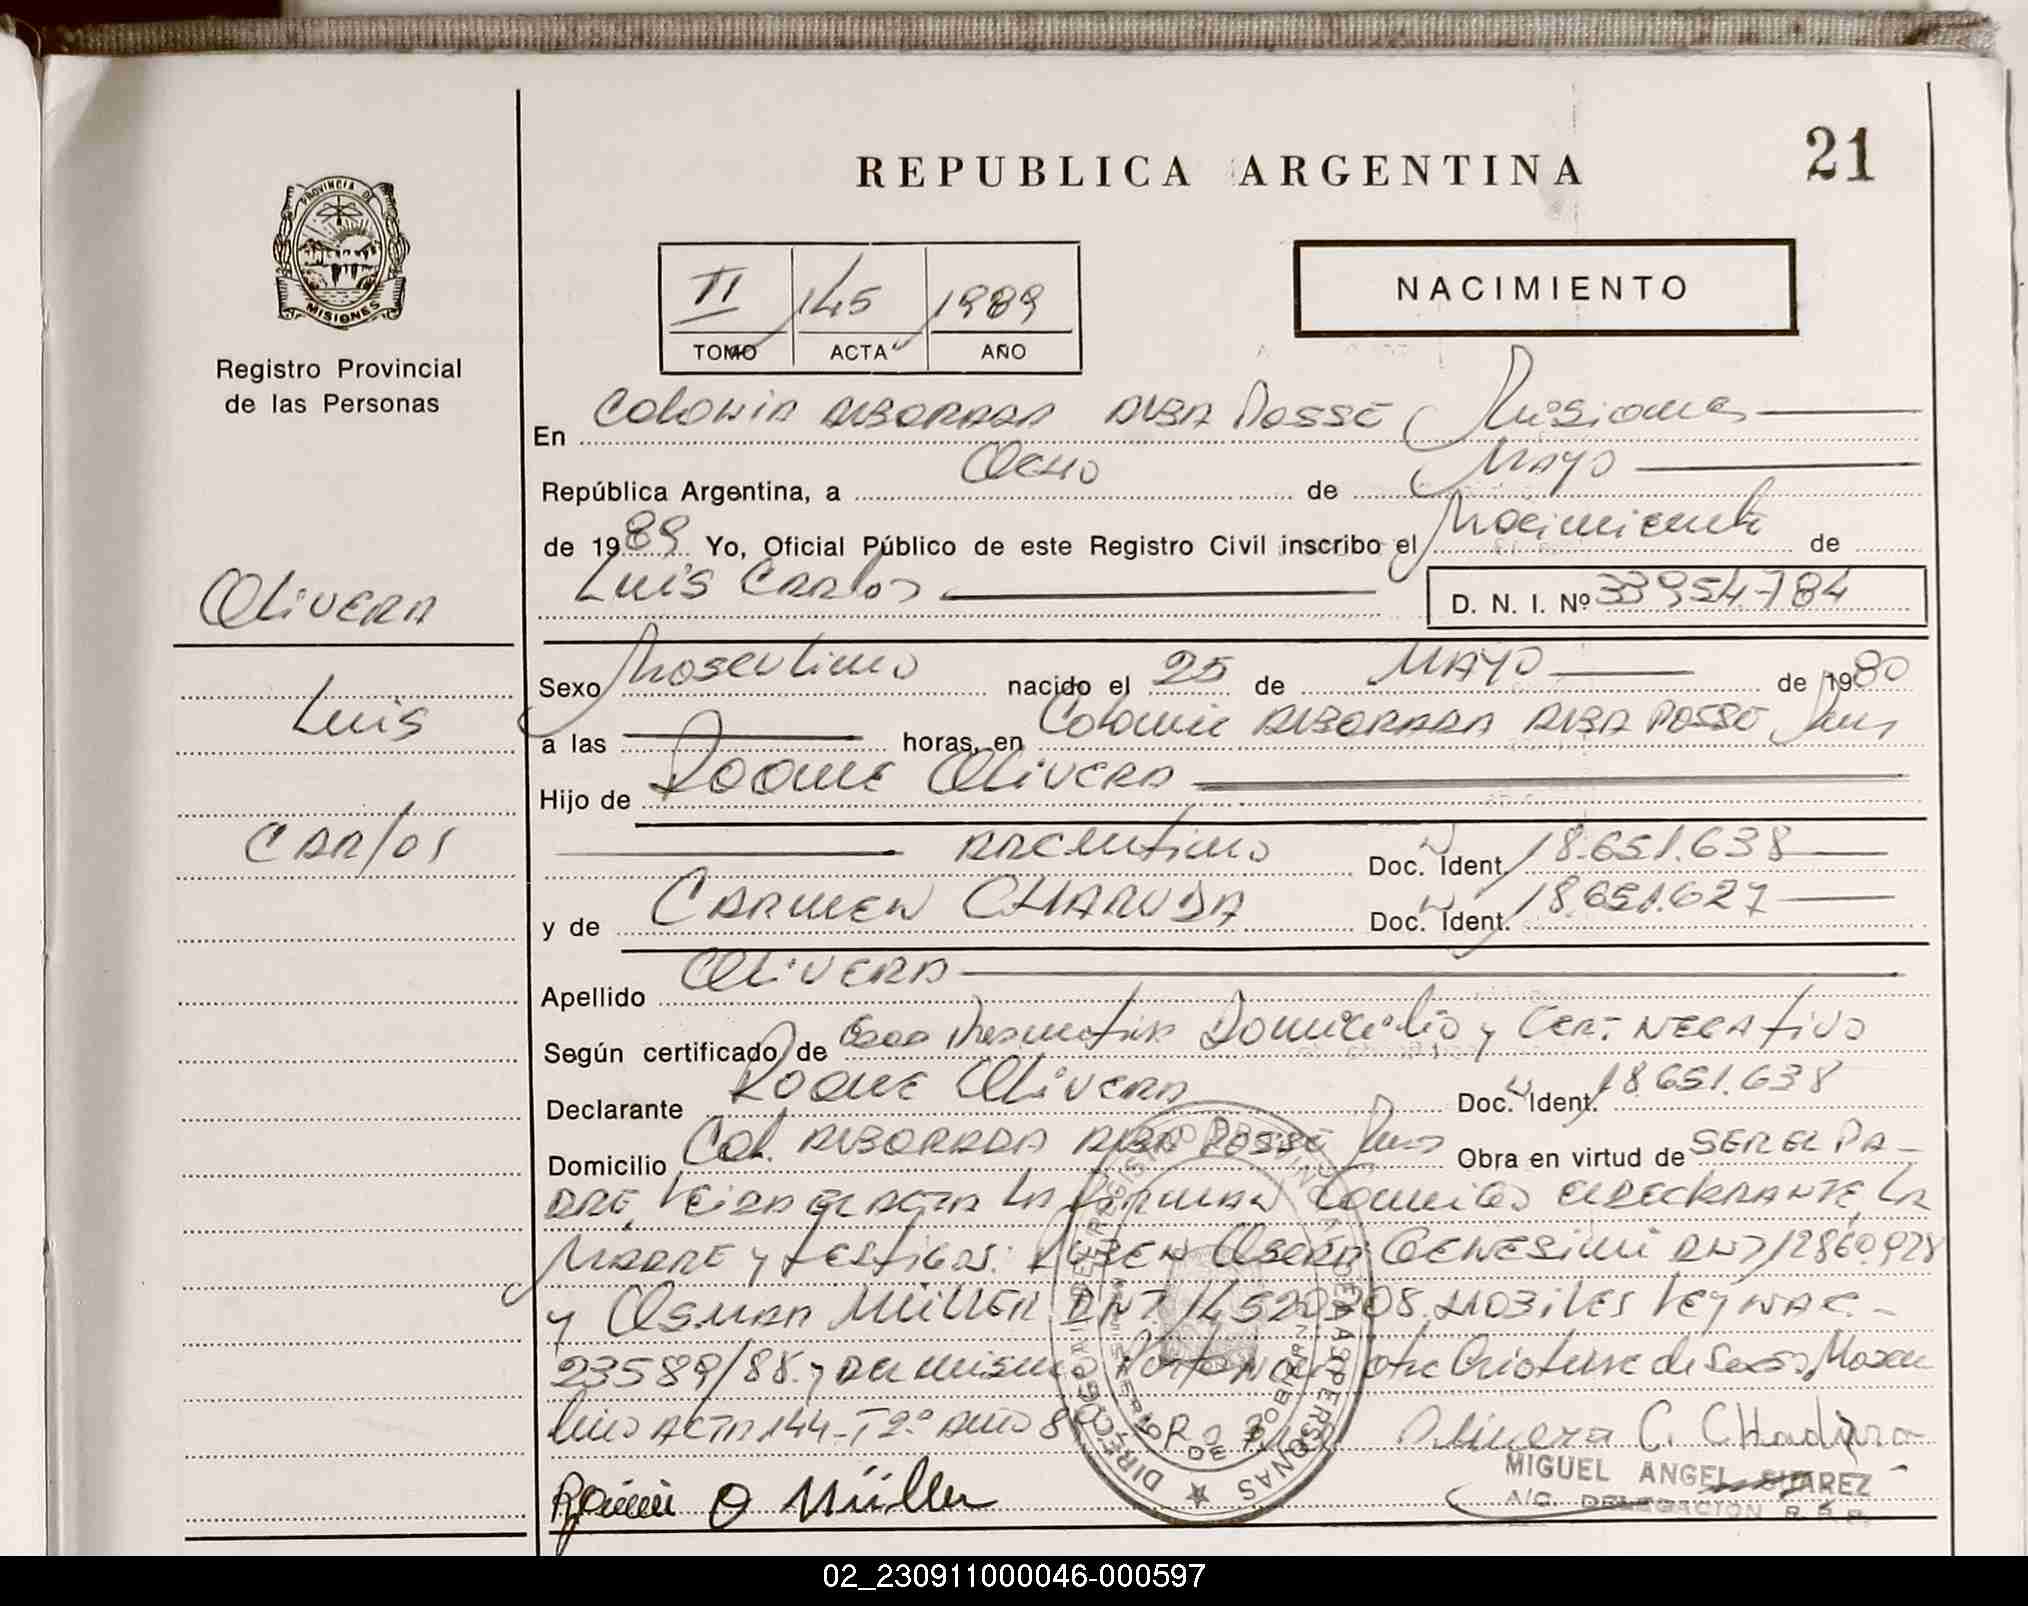 REPUBLICA ARGENTINA
21
PROVINCIA DE
MISIONES
Registro Provincial
de las Personas
II 145 1989
TOMO ACTA AÑO
NACIMIENTO
En Colonia Alborada Alba Posse Misiones
República Argentina, a Ocho de Mayo
de 1989 Yo, Oficial Público de este Registro Civil inscribo el Nacimiento de
Luis Carlos D. N. I. Nº 33954784
Olivera
Luis
Carlos
Sexo Masculino nacido el 25 de Mayo de 1980
a las horas, en Colonia Alborada Alba Posse Mns
Hijo de Roque Olivera
Argentino Doc. Ident. 18.651.638
y de Carmen Doc. Ident. 18.651.627
Apellido Olivera
Según certificado de Domicilio y Cert. Negativo
Declarante Roque Olivera Doc. Ident. 18651.638
Domicilio Col. Alborada Alba Posse Mns Obra en virtud de ser el pa-
dre, Leida el acta la firman conmigo el declarante, la
Madre y testigos: Ruben Oscar DNI 12860.928
y Osmar Müller DNI. 14520308. Ley Nac.-
23589/88. y del mismo otra Criatura de Sexo Mascu
lino Acta 144-T2º Año 89
Olivera C.
MIGUEL ANGEL SUAREZ
A/C. DELEGACION R. P. P.
O Müller
02_230911000046-000597